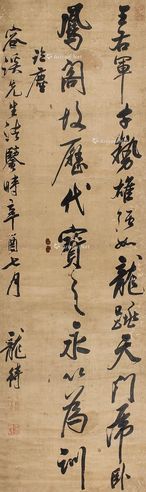 王右軍字勢雄強如龍跳天門虎臥
鳳閣故歷代寶之永以為訓
詒塵
容溪先生法鑒時辛酉七月
龍績